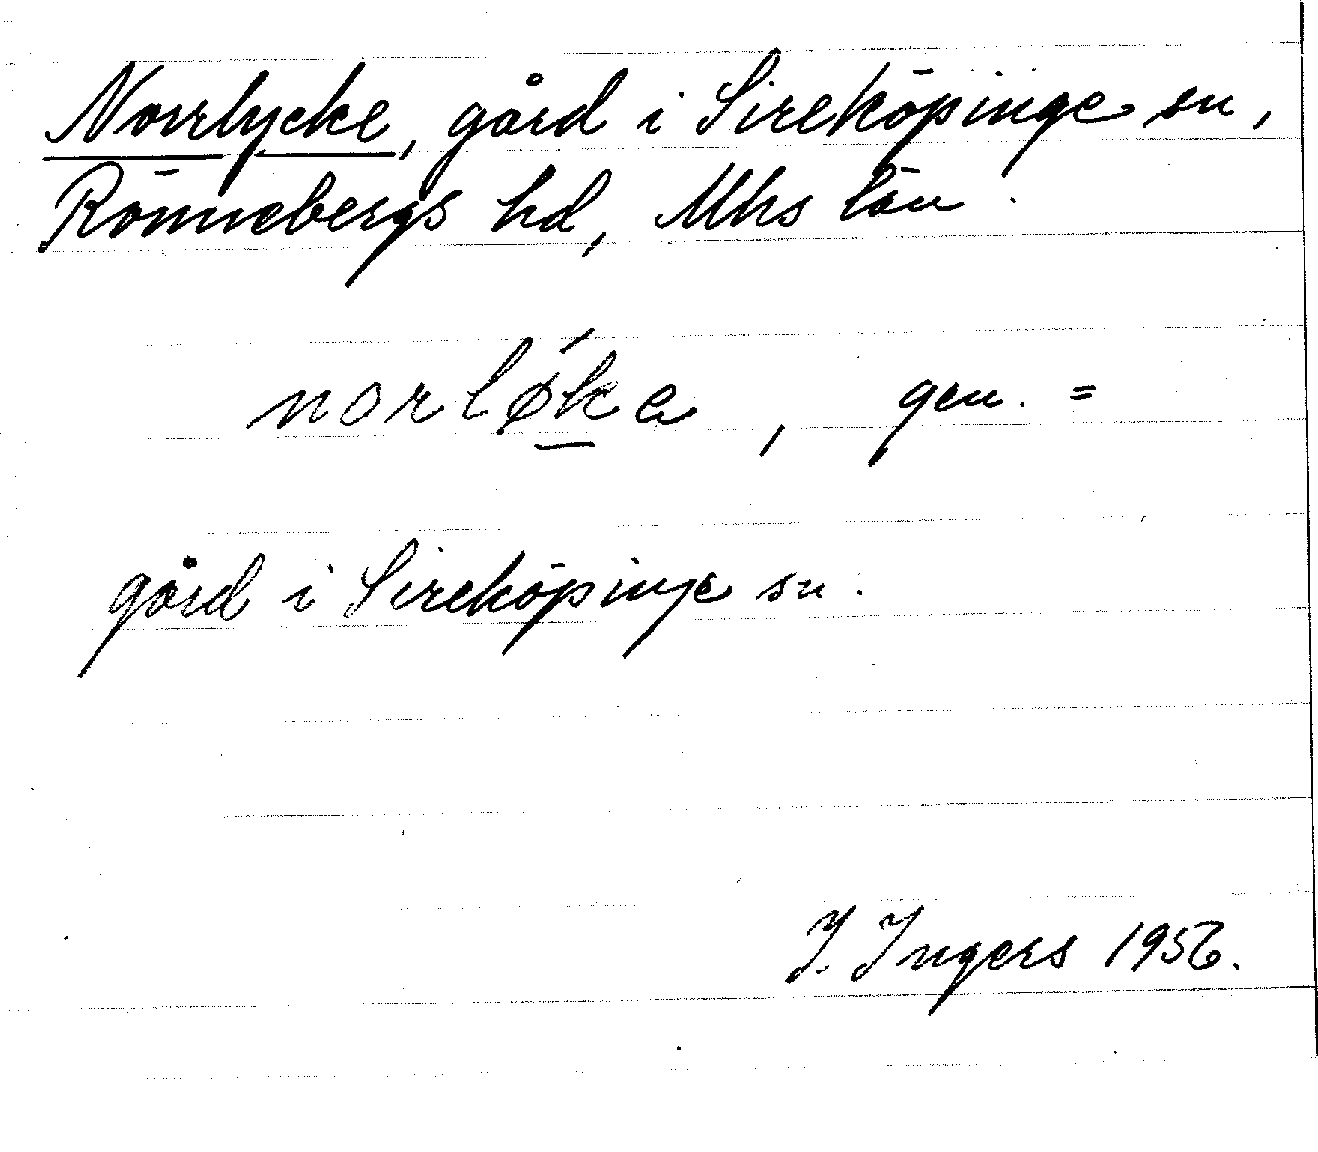 Norrlycke, gård i Sireköpinge sn,
Rönnebergs hd, Mhs län.
norlǿka, gen. =
gård i Sireköpinge sn.
I. Ingers 1956.